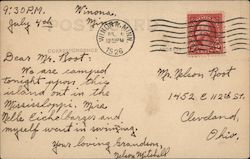 9:30 P.M. Winona,
July 4th
POST CARD
CORRESPONDENCE
WINONA, MINN.
1926
Dear Mr. Root:
We are camped
tonight upon this
island out in the
Mississippi. Miss
Nelle Eichelberger and
myself went in swimming.
Your loving Grandson,
Nelson Mitchell
Mr. Nelson Root
1452 E 112th St.
Cleveland,
Ohio.